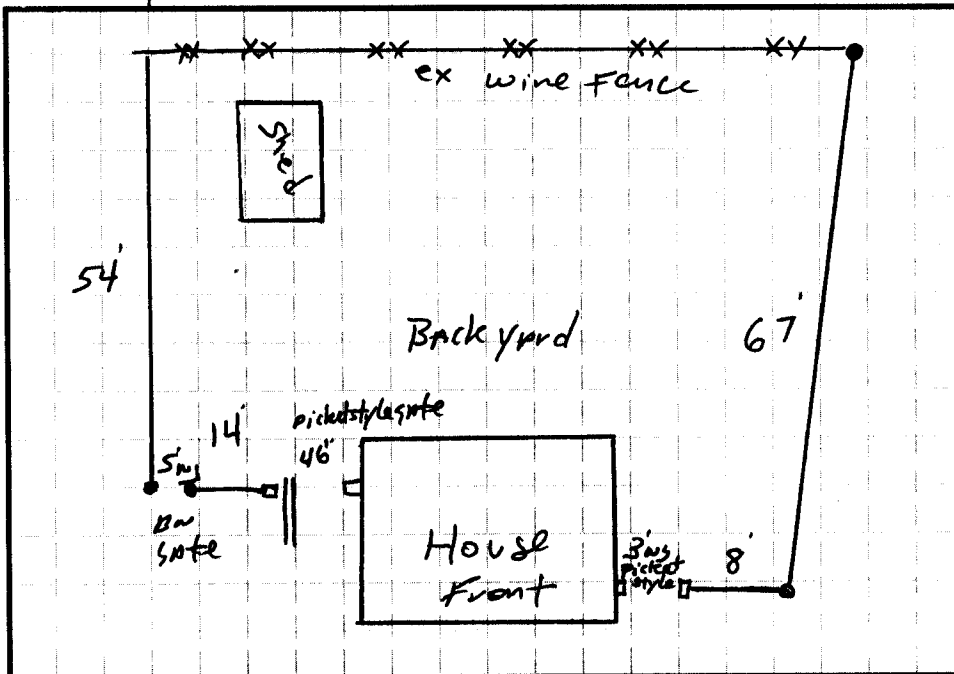 ex wire Fence
Shed
54'
Backyard
67'
14'
picket style gate
46"
5'
gate
House
Front
picket
style
8'